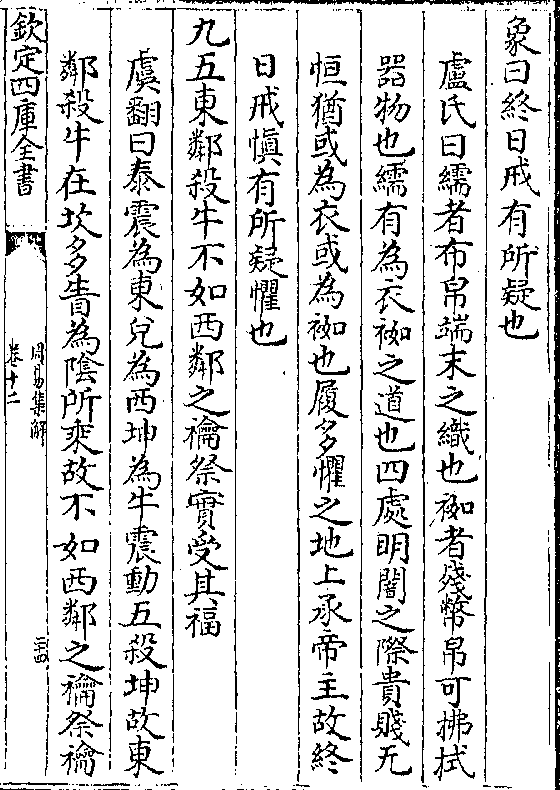 象曰終日戒有所疑也
盧氏曰繻者布帛端末之織也袽者殘幣帛可拂拭
器物也繻有為衣袽之道也四處明闇之際貴賤无
恒猶或為衣或為袽也履多懼之地上承帝主故終
日戒慎有所疑懼也
九五東鄰殺牛不如西鄰之禴祭實受其福
虞翻曰泰震為東兌為西坤為牛震動五殺坤故東
鄰殺牛在坎多眚為陰所乘故不如西鄰之禴祭禴
欽定四庫全書
周易集解
卷十二
二十四